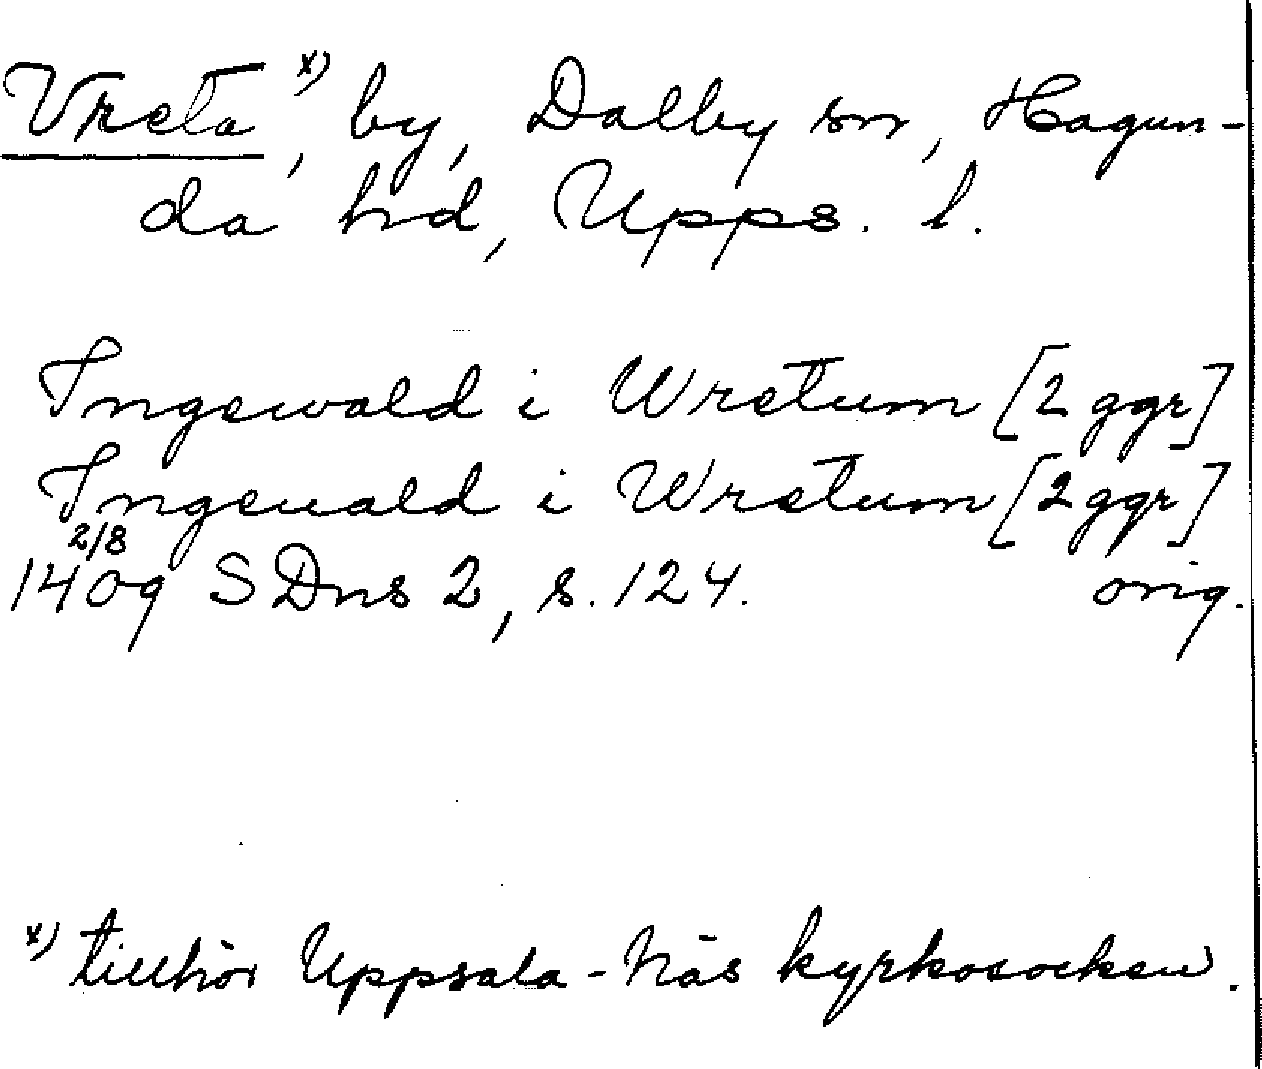 Vreta x), by, Dalby sn, Hagun-
da hd, Upps. l.
Ingewald i Wretum [2 ggr]
Ingeuald i Wretum [2 ggr]
2/8
1409 SDns 2, s. 124. orig.
x) tillhör Uppsala-Näs kyrkosocken.